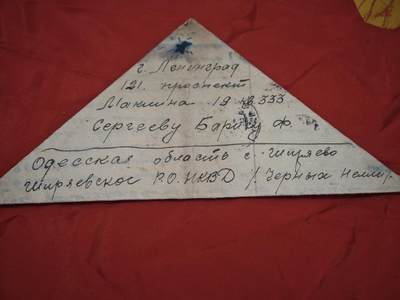 г. Ленинград
121. проспект
Маклина 19 кв 333
Сергееву Борису Ф.
Одесская область с. Ширяево
Ширяевское Р.О. НКВД / Черных